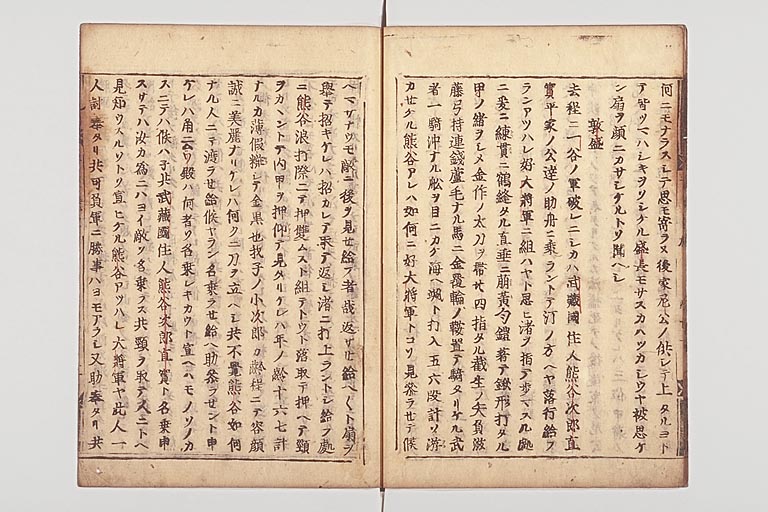 何ニモナラスシテ思モ寄ラヌ後家尼公ノ供シテ上タルヨト
テ皆ツマハシキヲソシケル盛長モサスカハツカシウヤ被思ケ
ン扇ヲ顔ニカサシケルトソ聞ヘシ
敦盛
去程ニ一ノ谷ノ軍破レニシカハ武蔵國住人熊谷次郎直
實平家ノ公達ノ助舟ニ乗ラントテ汀ノ方ヘヤ落行給フ
ランアツハレ好大將軍ニ組ハヤト思ヒ渚ヲ指テ歩マスル処
ニ爰ニ練貫ニ鶴縫タル直垂ニ萠黄匂鎧著テ鍬形打タル
甲ノ緒ヲシメ金作ノ太刀ヲ帯廿四指タル截生ノ矢負滋
藤弓持連錢蘆毛ナル馬ニ金覆輪ノ鞍置テ騎タリケル武
者一騎沖ナル舩ヲ目ニカケ海ヘ颯ト打入五六段計ソ游
カセケル熊谷アレハ如何ニ好大將軍トコソ見参ラセテ候
ヘマサナウモ敵ニ後ヲ見セ給フ者哉返サセ給ヘ〱ト扇ヲ
擧テ招キケレハ招カレテ取テ返シ渚ニ打上ラントシ給フ處
ニ熊谷浪打際ニテ押雙ムスト組テトウト落取テ押ヘテ頸
ヲカヽントテ内甲ヲ押仰テ見タリケレハ年ノ齢十六七計
ナルカ薄假粧シテ金黒也我子ノ小次郎カ齢程ニテ容顔
誠ニ美麗ナリケレハ何クニ刀ヲ立ヘシ共不覺熊谷如何
ナル人ニテ渡ラセ給候ヤラン名乗ラセ給ヘ助参ラセント申
ケレハ角云ワ殿ハ何者ソ名乗レキカウト宣ヘハモノソノカ
スニテハ候ハ子共武蔵國住人熊谷次郎直實ト名乗申
スサテハ汝カ為ニハヨイ敵ソ名乗ラス共頸ヲ取テ人ニトヘ
見知ウスルソトソ宣ヒケル熊谷アツハレ大將軍ヤ此人一
人討奉タリ共可負軍ニ勝事ハヨモアラシ又助奉タリ共